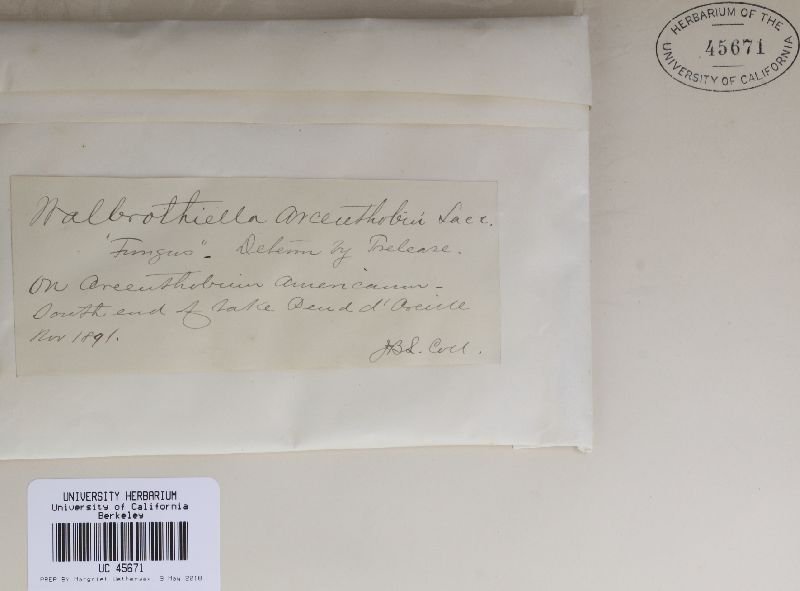 HERBARIUM OF THE
45671
UNIVERSITY OF CALIFORNIA
Walbrothiella Arceuthobii Sacc.
"Fungus" - Determ by Trelease.
On Arceuthobium Americanum -
South end of Lake Pend d'Oreille
Nov 1891.
JBL. Coll.
UNIVERSITY HERBARIUM
University of California
Berkeley
UC 45671
PREP BY Margriet Wetherwax, 3 May 2010